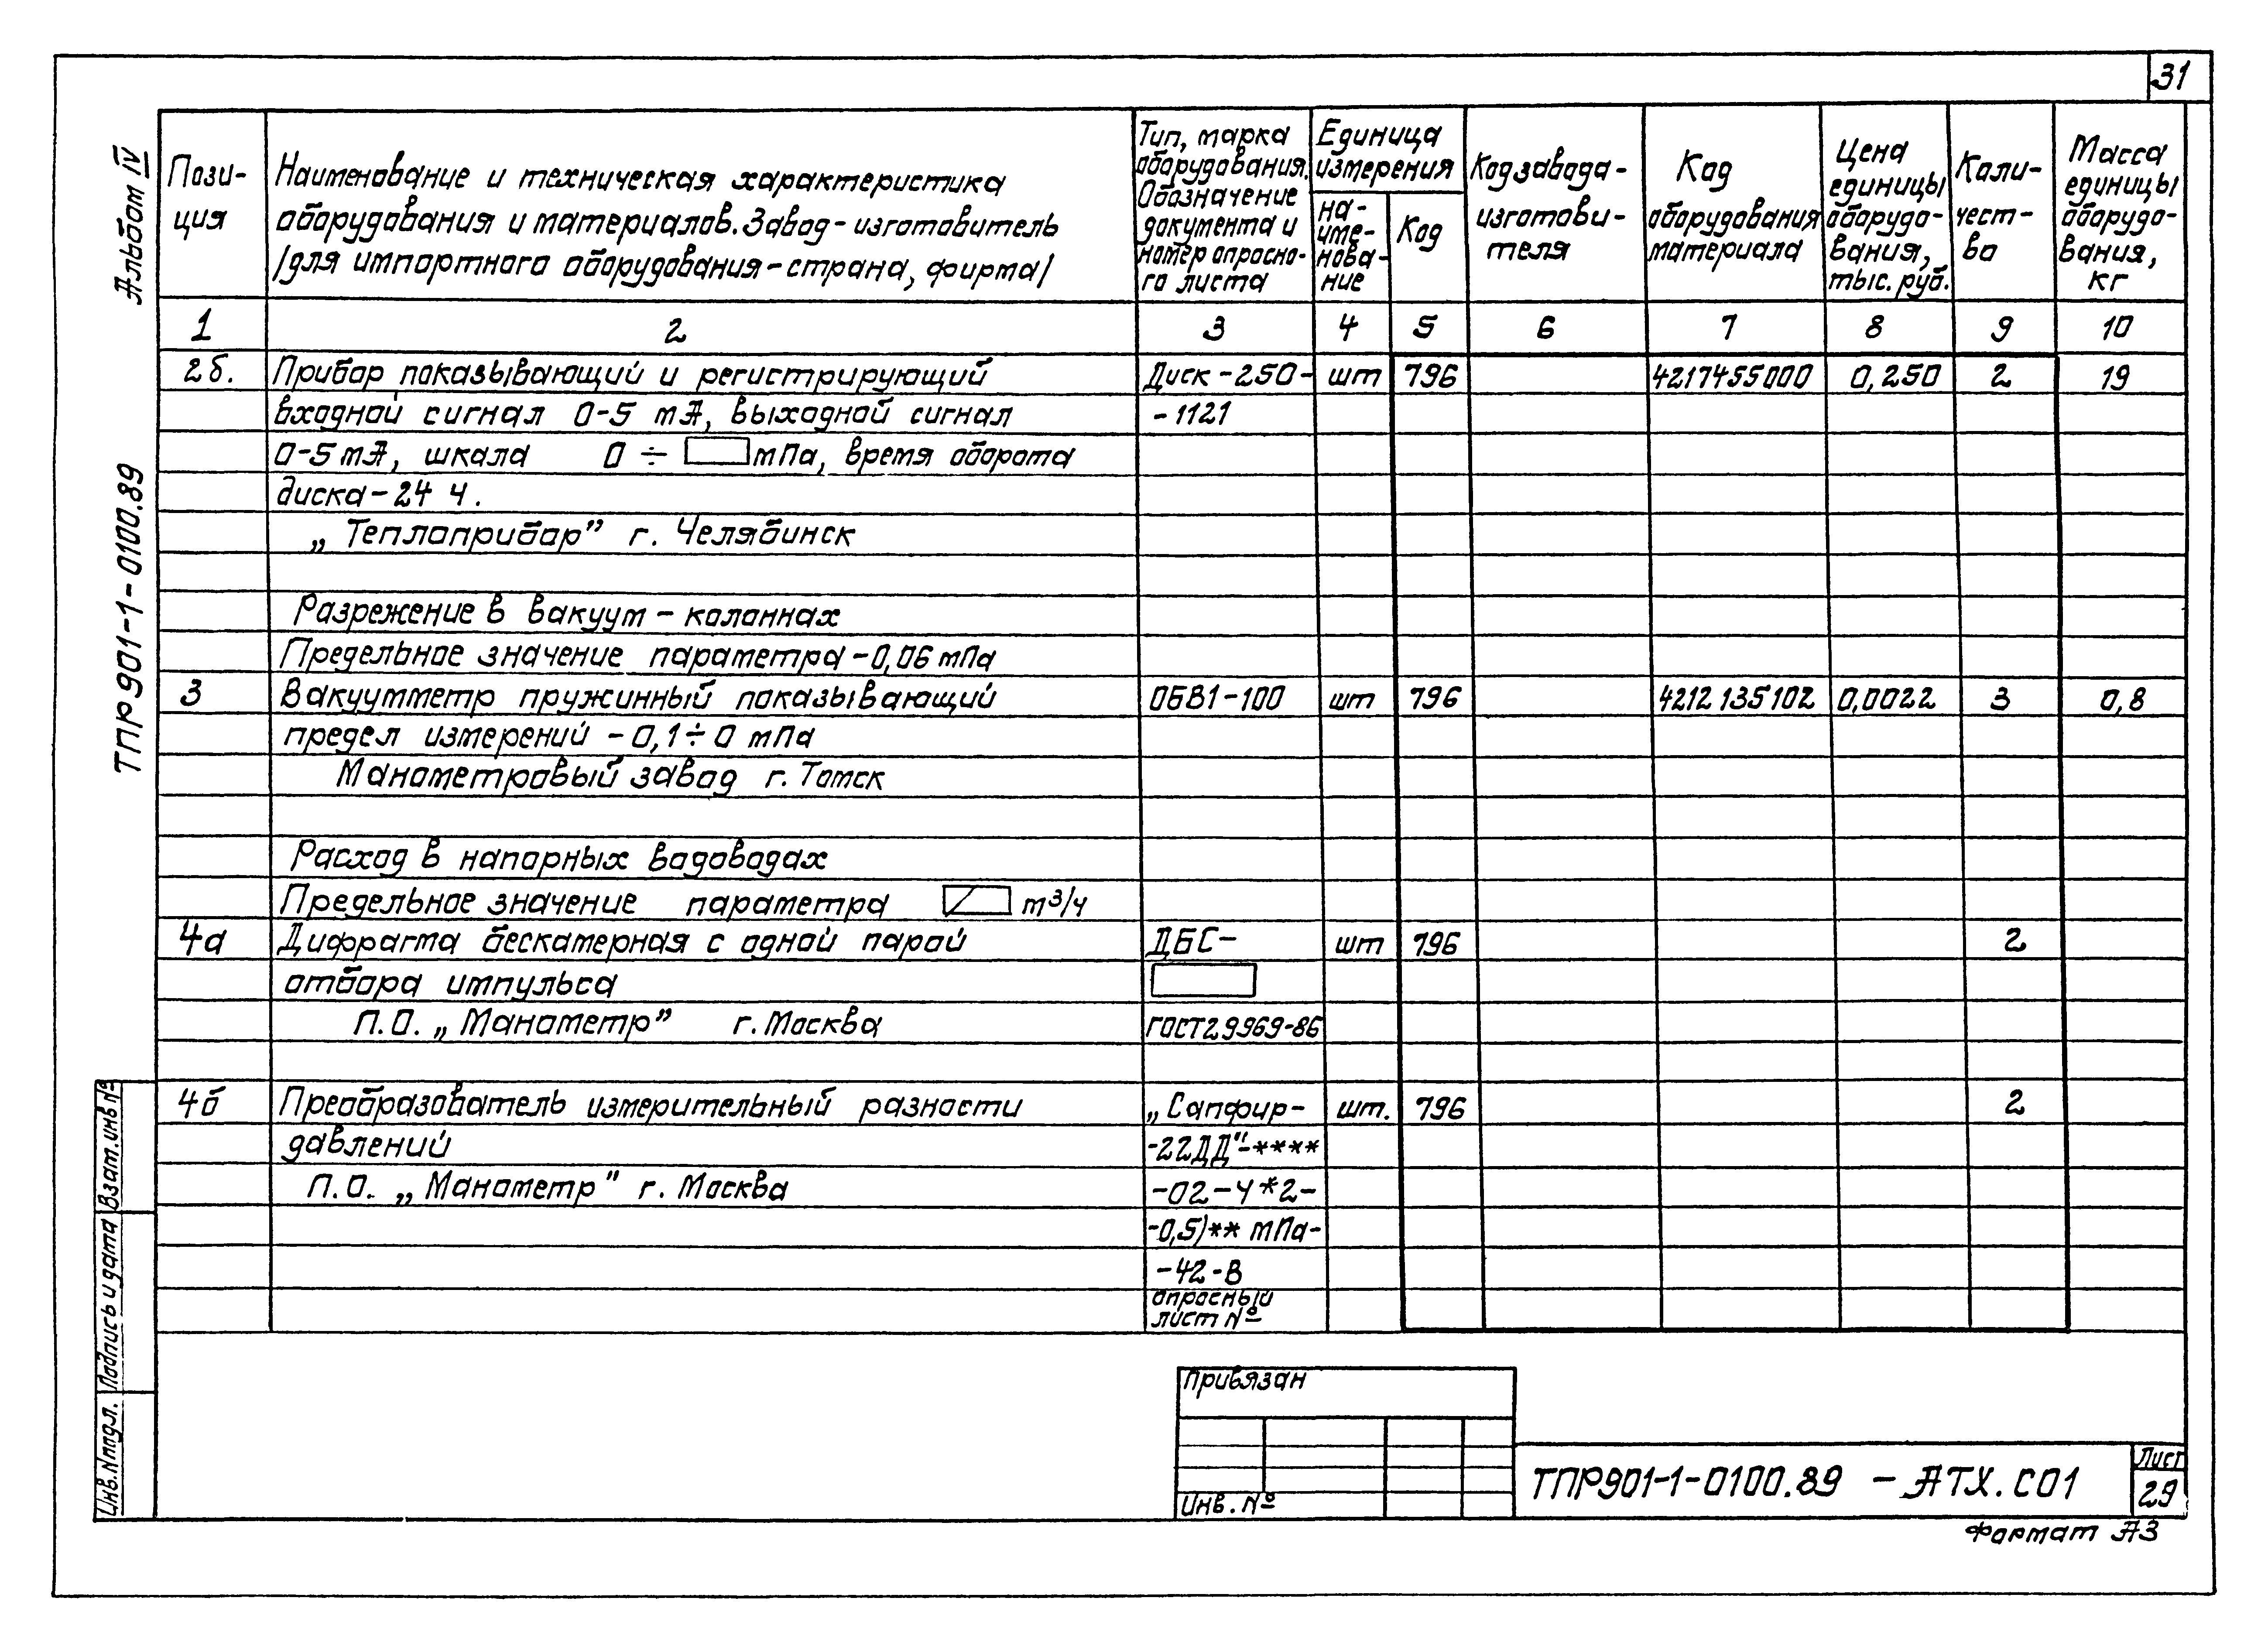 31
Альбом IV
ТПР 901-1-0100.89
Пози-
ция
Наименование и техническая характеристика
оборудования и материалов. Завод-изготовитель
/для импортного оборудования-страна, фирма/
Тип, марка
оборудования.
Обозначение
документа и
номер опросно-
го листа
Единица
измерения
на-
име-
нова-
ние
Код
Код завода-
изготови-
теля
Код
оборудования
материала
Цена
единицы
оборудо-
вания,
тыс. руб.
Коли-
чест-
во
Масса
единицы
оборудо-
вания,
кг
1 2 3 4 5 6 7 8 9 10
2б. Прибор показывающий и регистрирующий Диск-250- шт 796 4217455000 0,250 2 19
входной сигнал 0-5 мА, выходной сигнал -1121
0-5 мА, шкала 0 ÷ мПа, время оборота
диска-24 ч.
„Теплоприбор" г. Челябинск
Разрежение в вакуум-колоннах
Предельное значение параметра-0,06 мПа
3 Вакуумметр пружинный показывающий ОБВ1-100 шт 796 4212135102 0,0022 3 0,8
предел измерений -0,1÷0 мПа
Манометровый завод г. Томск
Расход в напорных водоводах
Предельное значение параметра м³/ч
4а Дифрагма бескамерная с одной парой ДБС- шт 796 2
отбора импульса
П.О. „Манометр" г. Москва ГОСТ29969-86
4б Преобразователь измерительный разности „Сапфир- шт. 796 2
давлений -22ДД"-****
П.О. „Манометр" г. Москва -02-У*2-
-0,5)** мПа-
-42-В
опросный
лист №
Взам. инв №
Подпись и дата
Инв. №подл.
Привязан
Инв. №
ТПР901-1-0100.89 - АТХ.СО1
Лист
29
Формат А3